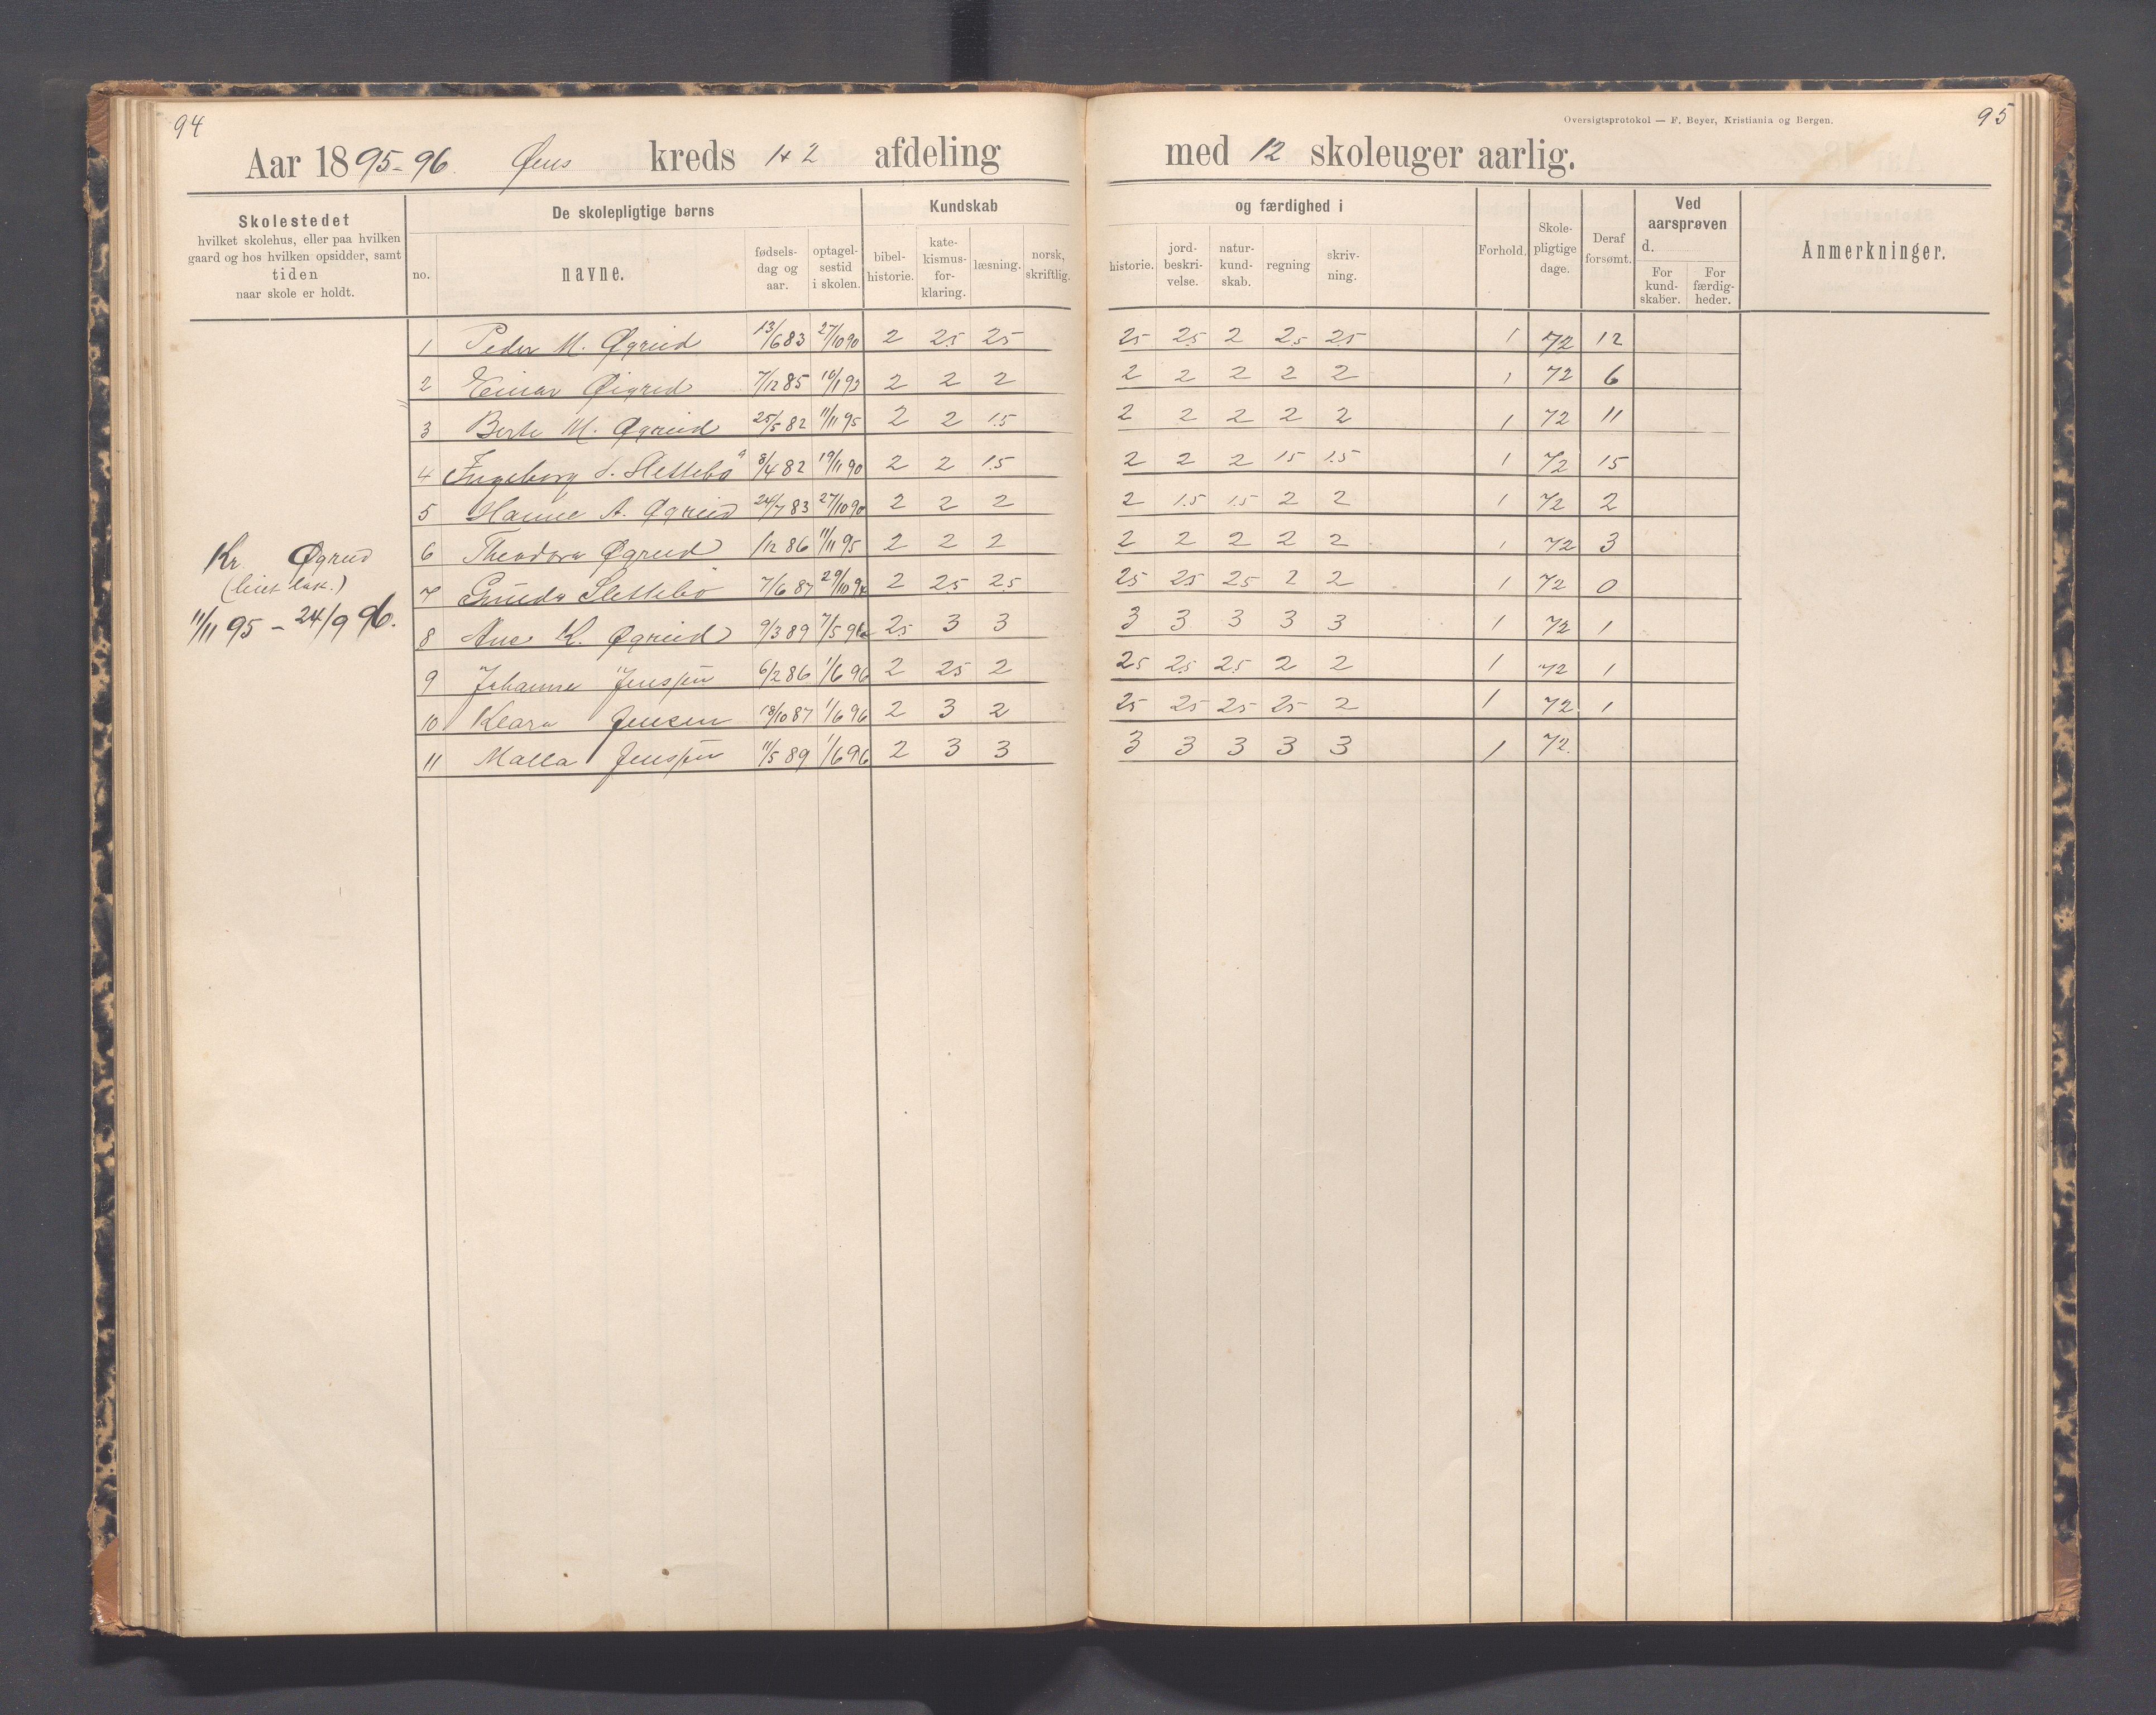 94
Aar 1895-96. Øens kreds 1+2 afdeling
Skolestedet
hvilket skolehus, eller paa hvilken
gaard og hos hvilken opsidder, samt
tiden
naar skole er holdt.
De skolepligtige børns
no.
navne.
fødsels-
dag og
aar.
optagel-
sestid
i skolen.
Kundskab
bibel-
historie.
kate-
kismus-
for-
klaring.
læsning.
norsk,
skriftlig.
1 Peder M. Øgreid 13/6 83 27/10 90 2 2.5 2.5
2 Einar Øigreid 7/12 85 10/1 93 2 2 2
3 Berte M. Øgreid 25/5 82 11/11 95 2 2 1.5
4 Ingeborg S. Slettebø 8/4 82 19/11 90 2 2 1.5
5 Hanne A. Øgreid 24/7 83 27/10 90 2 2 2
6 Theodora Øgreid /12 86 11/11 95 2 2 2
7 Slettebø 7/6 87 29/10 94 2 2.5 2.5
8 Ane K. Øgreid 9/3 89 7/5 96 2.5 3 3
9 Johanne Jensen 6/2 86 1/6 96 2 2.5 2
10 Klara Jensen 18/10 87 1/6 96 2 3 2
11 Malla Jensen 11/5 89 1/6 96 2 3 3
Kr. Øgreid
(leiet lok.)
11/11 95 - 24/9 96.
95
Oversigtsprotokol — F. Beyer, Kristiania og Bergen.
med 12 skoleuger aarlig.
og færdighed i
historie.
jord-
beskri-
velse.
natur-
kund-
skab.
regning
skriv-
ning.
Forhold.
Skole-
pligtige
dage.
Deraf
forsømt.
Ved
aarsprøven
d.
For
kund-
skaber.
For
færdig-
heder.
Anmerkninger.
2.5 2.5 2 2.5 2.5 1 72 12
2 2 2 2 2 1 72 6
2 2 2 2 2 1 72 11
2 2 2 1.5 1.5 1 72 15
2 1.5 1.5 2 2 1 72 2
2 2 2 2 2 1 72 3
2.5 2.5 2.5 2 2 1 72 0
3 3 3 3 3 1 72 1
2.5 2.5 2.5 2 2 1 72 1
2.5 2.5 2.5 2.5 2 1 72 1
3 3 3 3 3 1 72